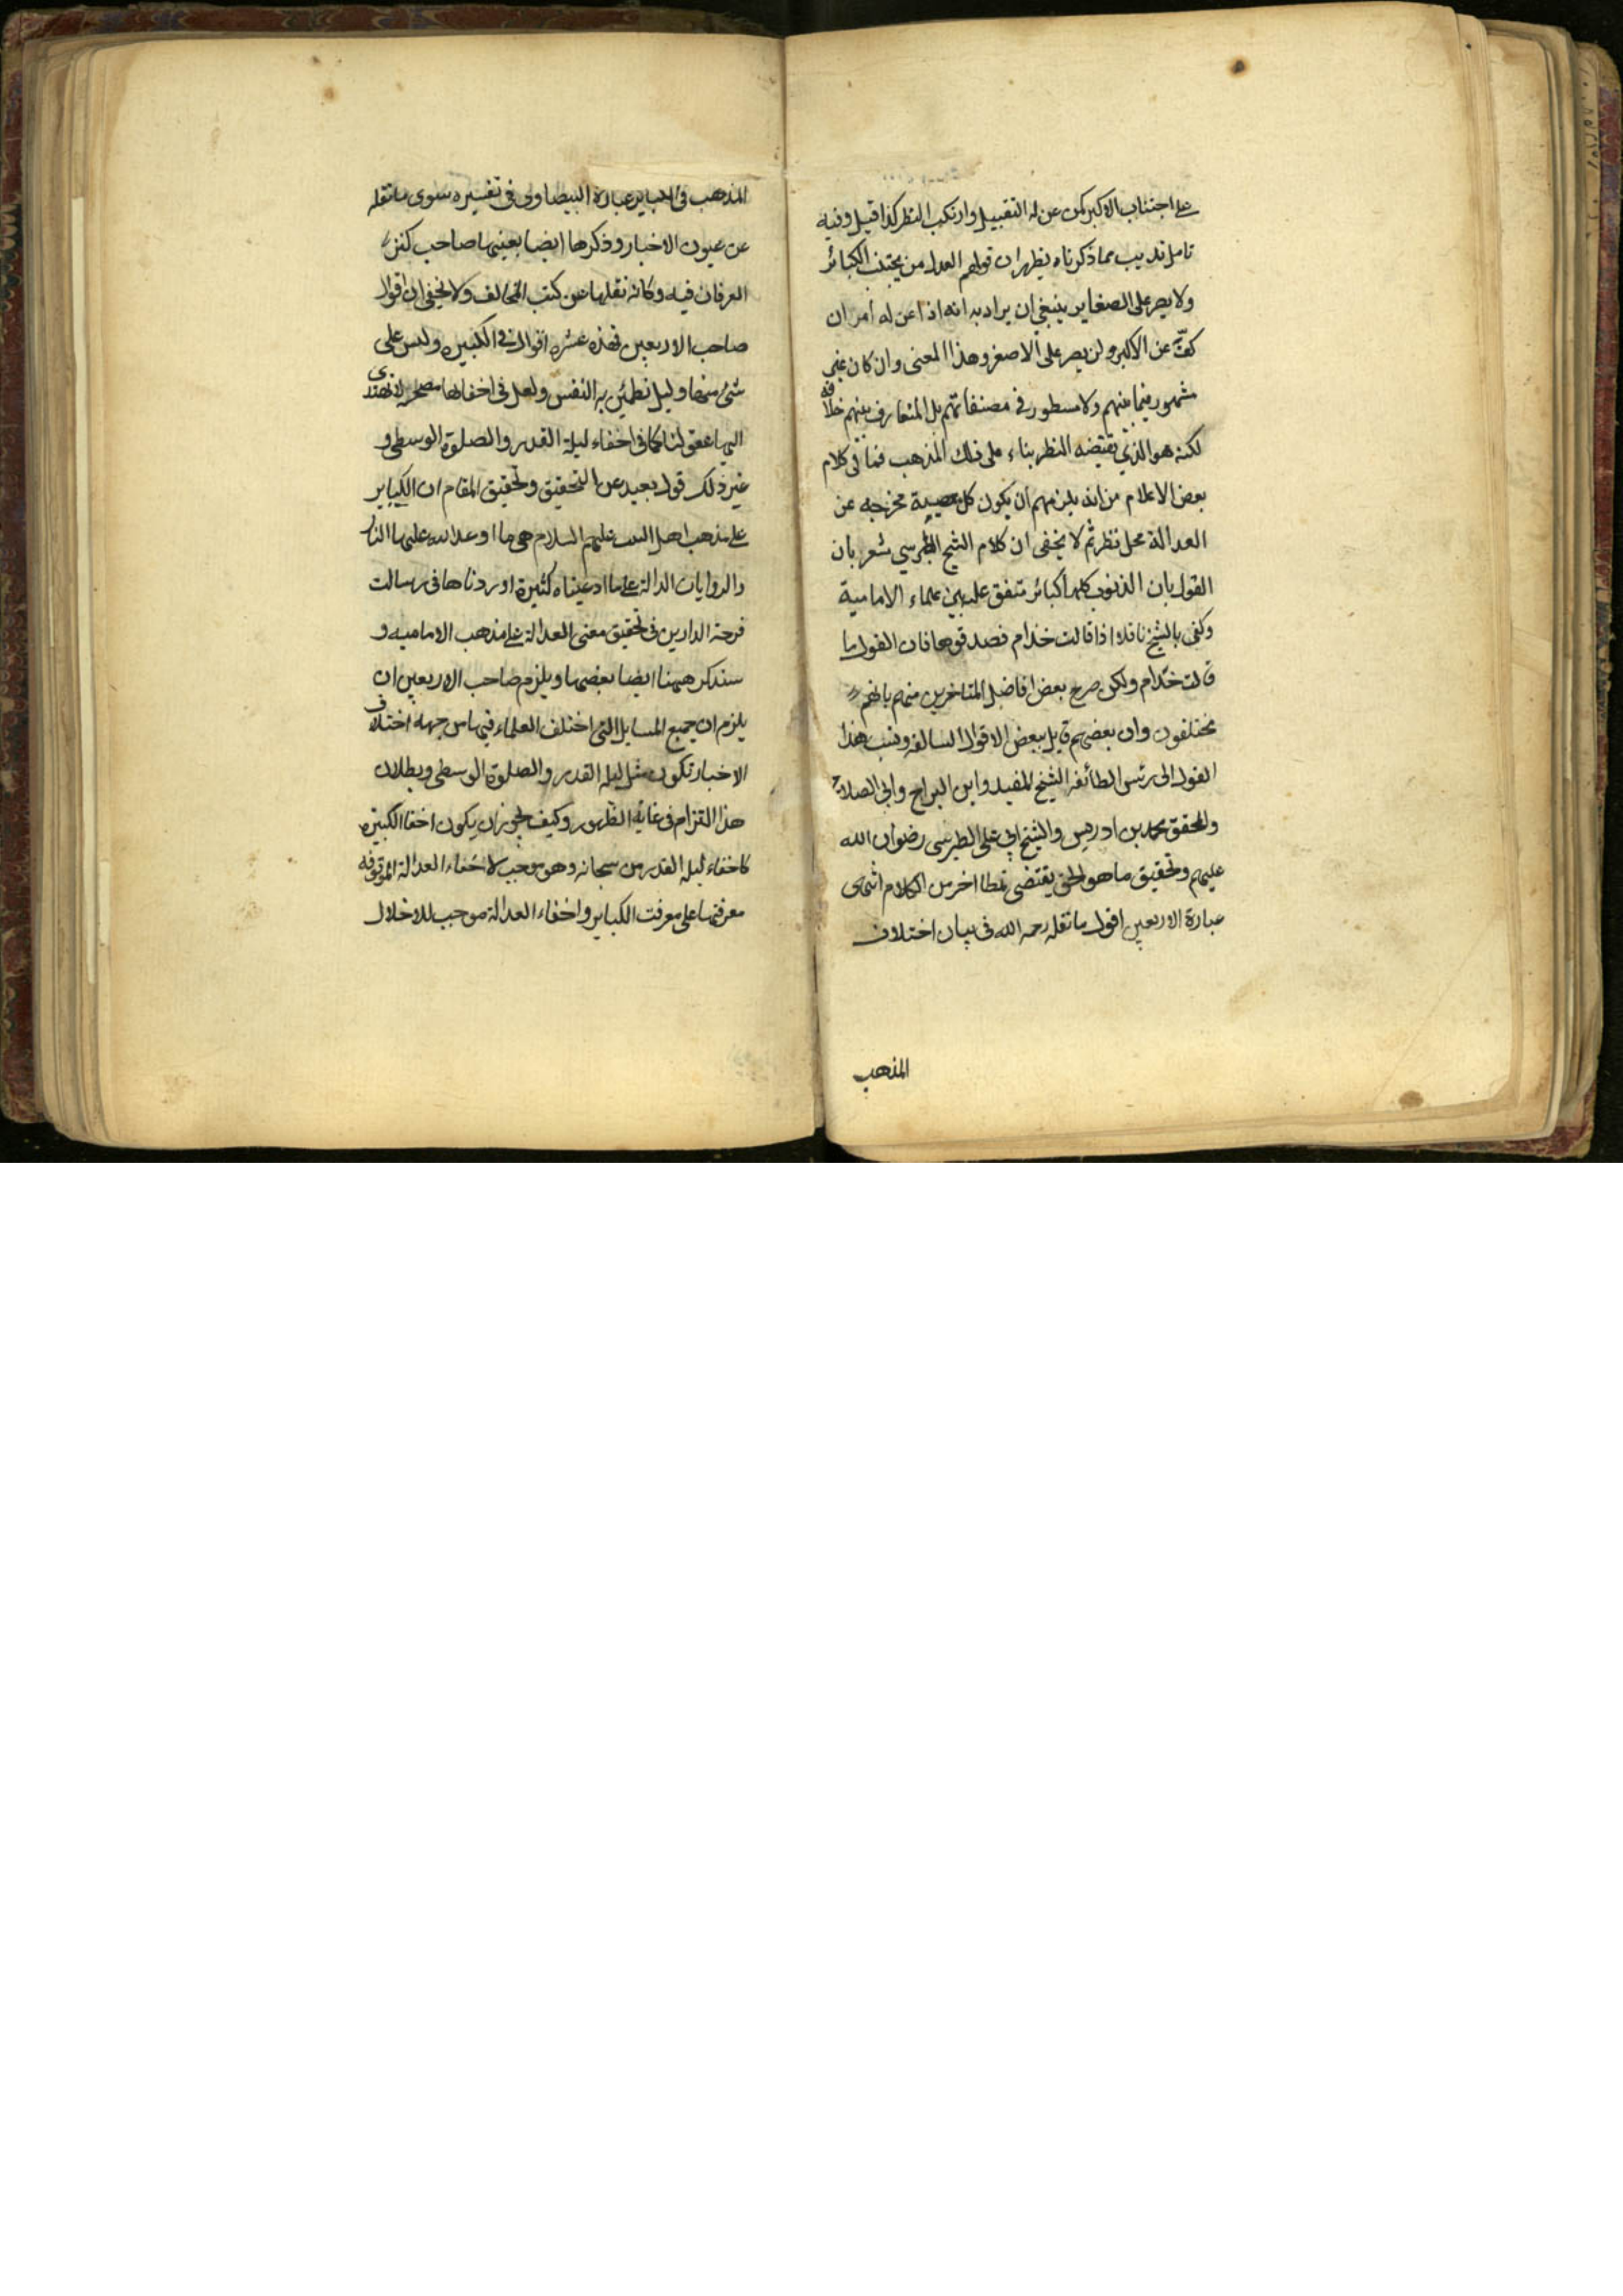 على اجتناب الاكبر كمن عن له التقبيل وارتكب النظر كذا قيل وفيه
تامل تذييب مما ذكرناه يظهر ان قولهم العدل من يجتنب الكبائر
ولا يصر على الصغاير ينبغي ان يراد به انه اذا عن له امران
كفّ عن الاكبر ولن يصر على الاصغر وهذا المعنى وان كان غير
مشهور فيما بينهم ولا مسطور في مصنفاتهم بل المتعارف بينهم خلافه
لكنه هو الذي يقتضيه النظر بناء على ذلك المذهب فما في كلام
بعض الاعلام من انه يلزمهم ان يكون كل معصية مخرجه عن
العدالة محل نظر ثم لا يخفى ان كلام الشيخ الطبرسي شعر بان
القول بان الذنوب كلها كبائر متفق عليه بين علماء الامامية
وكفى بالشيخ ناقلا اذا قالت خذام فصدقوها فان القول ما
قالت خذام ولكن صرح بعض افاضل المتاخرين منهم بانهم
مختلفون وان بعضهم قايل ببعض الاقوال السالفه ونسب هذا
القول الى رئس الطائفه الشيخ المفيد وابن البراج وابي الصلاح
والمحقق محمد بن ادريس والشيخ ابي على الطبرسى رضوان الله
عليهم وتحقيق ما هو الحق يقتضى نمطا اخر من الكلام انتهى
عبارة الاربعين اقول ما نقله رحمه الله فى بيان اختلاف
المذهب
المذهب فى الكباير عبارة البيضاوى فى تفسيره سوى ما نقله
عن عيون الاخبار وذكرها ايضا بعينها صاحب كنز
العرفان فيه وكانه نقلها عن كتب المخالف ولا يخفى ان اقوال
صاحب الاربعين فهذه عشره اقوال فى الكبيره وليس على
شئ منها دليل تطمئن به النفس ولعل فى اخفائها مصلحه لا تهتدى
اليها عقولنا كما فى اخفاء ليلة القدر والصلوة الوسطى و
غير ذلك قول بعيد عن التحقيق وتحقيق المقام ان الكباير
على مذهب اهل البيت عليهم السلام هى ما اوعد الله عليها النار
والروايات الدالة على ما ادعيناه كثيرة اوردناها فى رسالت
فرحة الدارين فى تحقيق معنى العدالة على مذهب الاماميه و
سنذكر ههنا ايضا بعضها ويلزم صاحب الاربعين ان
يلزم ان جميع المسايل التى اختلف العلماء فيها من جهه اختلاف
الاخبار تكون مثل ليله القدر والصلوة الوسطى وبطلان
هذا القزام فى غاية الظهور وكيف يجوز ان يكون اخفا الكبيره
كاخفاء ليله القدر من سبحانه وهو موجب لاخفاء العدالة الموقوفه
معرفتها على معرفت الكباير واخفاء العدالة موجب للاخلال